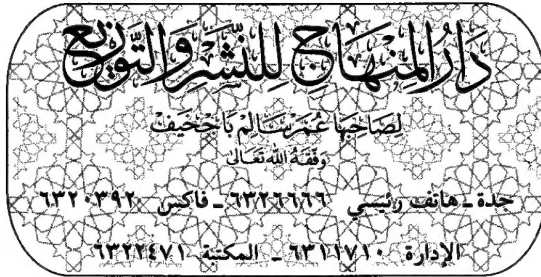 دَارُ المِنْهَاجِ لِلنَّشْرِ وَالتَّوْزِيعِ
لِصَاحِبِهَا عُمَرُ سَالِم بَاجْخَيْف
وَفَّقَهُ اللهُ تَعَالَى
جدة - هاتف رئيسي ٦٣٢٦٦٦٦ - فاكس ٦٣٢٠٣٩٢
الإدارة ٦٣١١٧١٠ - المكتبة ٦٣٢٢٤٧١